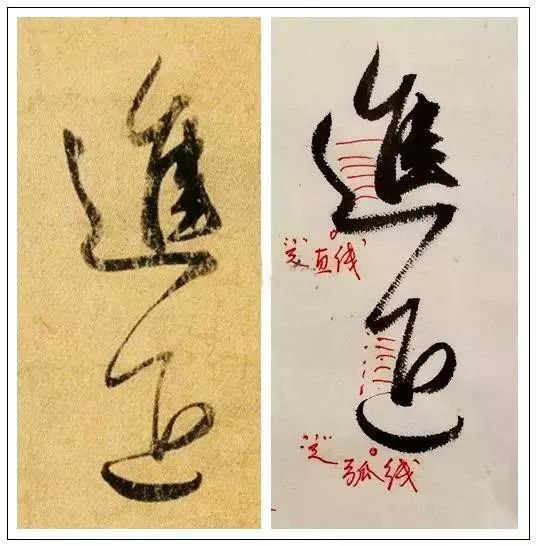 進
進
辶 直线
辶 弧线